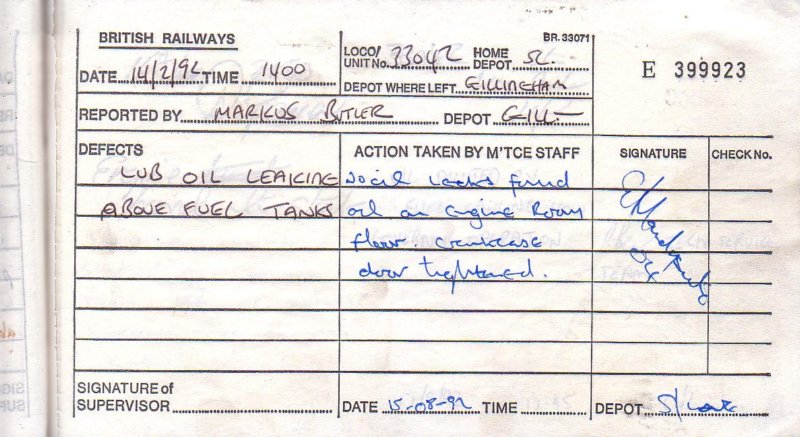 BRITISH RAILWAYS
BR. 33071
DATE 14/2/92 TIME 1400
LOCO/ UNIT No. 33042 HOME DEPOT SL
E 399923
DEPOT WHERE LEFT GILLINGHAM
REPORTED BY MARKUS BUTLER DEPOT GILL
DEFECTS ACTION TAKEN BY M'TCE STAFF SIGNATURE CHECK No.
LUB OIL LEAKING No oil leaks found
ABOVE FUEL TANKS oil on Engine Room
floor. crankcase
door tightened.
SIGNATURE of
SUPERVISOR DATE 15-08-92 TIME DEPOT